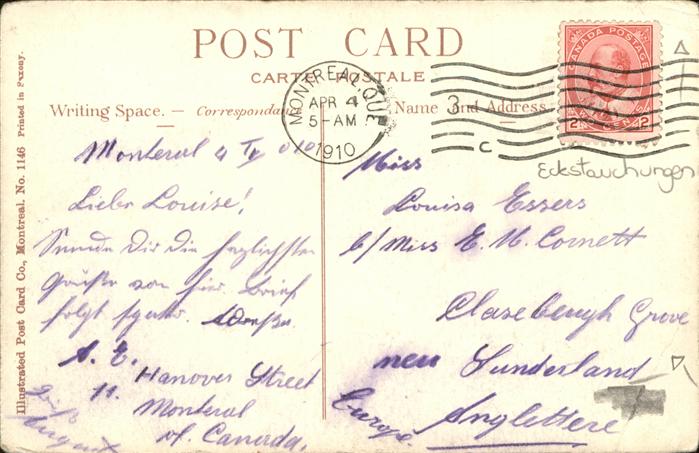 POST CARD
CARTE POSTALE
Writing Space. — Correspondance
Name and Address.
MONTREAL, QUE.
APR 4
5-AM
1910
3
C
CANADA POSTAGE
2 CENTS 2
Eckstauchungen
Illustrated Post Card Co., Montreal. No. 1146 Printed in Saxony.
Monteral 4 IV 010
Liebe Louise!
Sende Dir die herzlichsten
Grüße von hier. Brief
folgt später. Adresse.
A. E.
11. Hanover Street
Monteral
of Canada.
Gruß
August
Miss
Louisa Essers
c/ Miss E. M. Cornett
Claxebeugh Grove
near Sunderland
Anglettere
Europe.